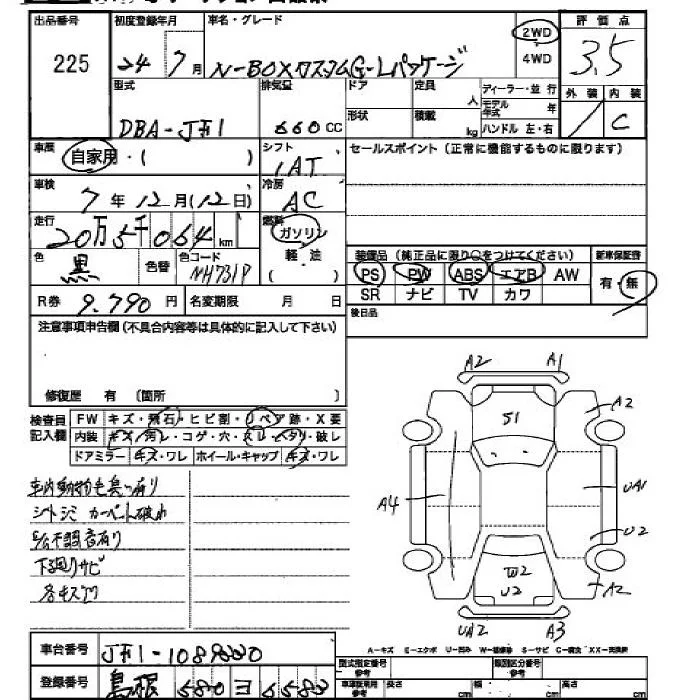 出品番号
225
初度登録年月
24年 7月
車名・グレード
N-BOXカスタムG-Lパッケージ
2WD
4WD
評価点
3.5
型式
DBA-JF1
排気量
660 CC
ドア
形状
定員
人
積載
kg
ディーラー・並行
モデル年式 年
ハンドル 左・右
外装 内装
C
車歴
自家用・( )
シフト
IAT
セールスポイント(正常に機能するものに限ります)
車検
7年12月(12日)
冷房
AC
走行
20万5千064 km
燃料
ガソリン
軽・油
( )
色
黒
色替
色コード
NH731P
装備品(純正品に限り○をつけてください)
新車保証書
PS PW ABS エアB AW
SR ナビ TV カワ
有・無
R券 9,790円
名変期限 月 日
後日品
注意事項申告欄(不具合内容等は具体的に記入して下さい)
修復歴 有 〔箇所 〕
検査員記入欄
FW キズ・飛石・ヒビ割・リペア跡・X要
内装 キズ・汚レ・コゲ・穴・スレ・ヘタリ・破レ
ドアミラー キズ・ワレ ホイール・キャップ キズ・ワレ
下廻りサビ
A2 A1
S1
A2
A4
UA1
U2
W2
U2
A2
UA2 A3
車台番号
登録番号
島根 580 ヨ
A-キズ E-エクボ U-凹み W-補修跡 S-サビ C-腐食 XX-交換済
型式指定番号
参考
類別区分番号
参考
長さ
cm
cm
cm